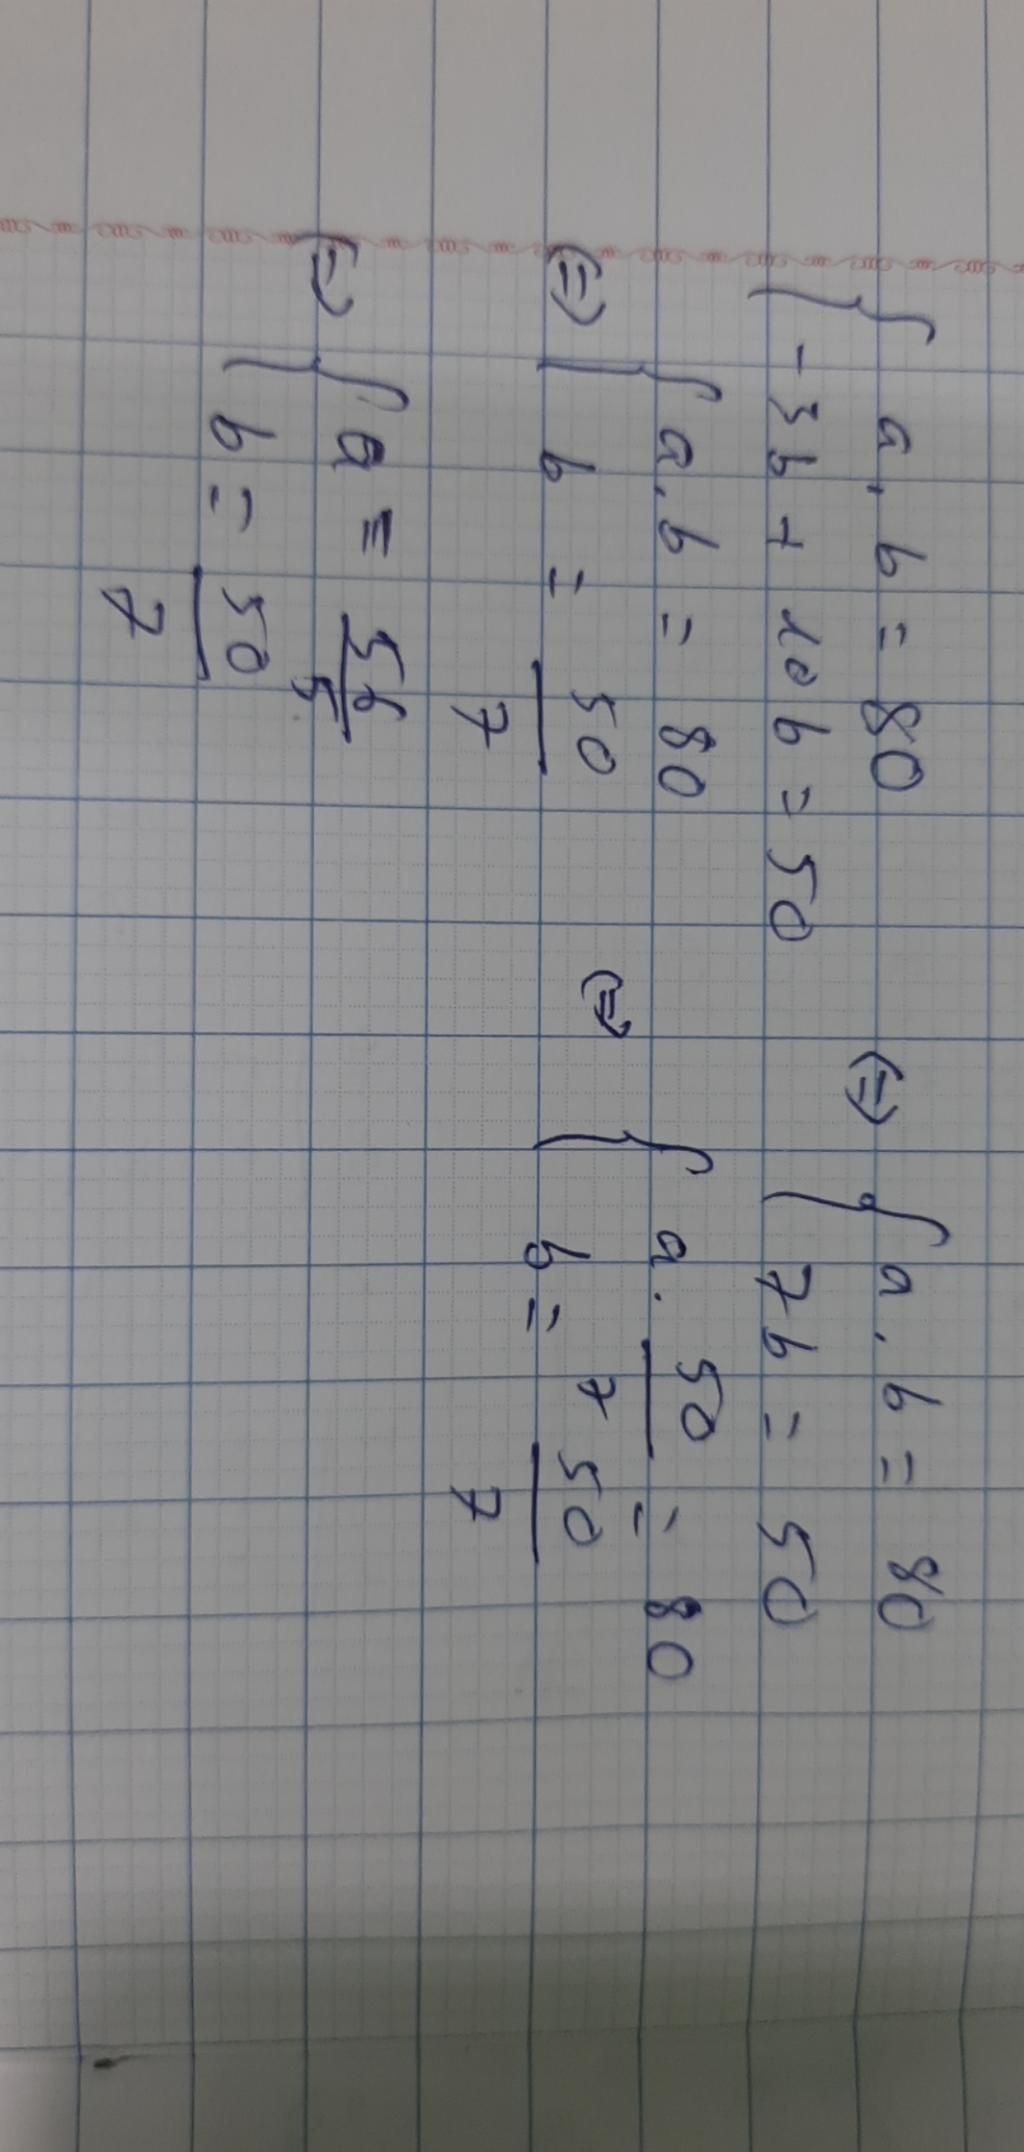 { a . b = 80
-3b + 10b = 50
⇔ { a . b = 80
7b = 50
⇔ { a . b = 80
b = 50/7
⇔ { a . 50/7 = 80
b = 50/7
⇔ { a = 56/5
b = 50/7